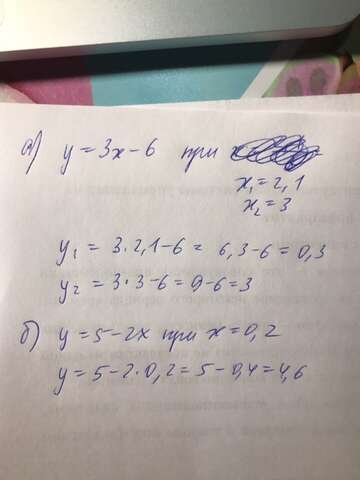 а) y = 3x - 6 при
x₁ = 2,1
x₂ = 3
y₁ = 3·2,1 - 6 = 6,3 - 6 = 0,3
y₂ = 3·3 - 6 = 9 - 6 = 3
б) y = 5 - 2x при x = 0,2
y = 5 - 2·0,2 = 5 - 0,4 = 4,6